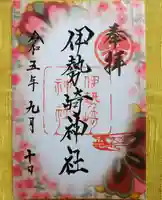 奉拝
伊勢崎神社
令和五年九月十日